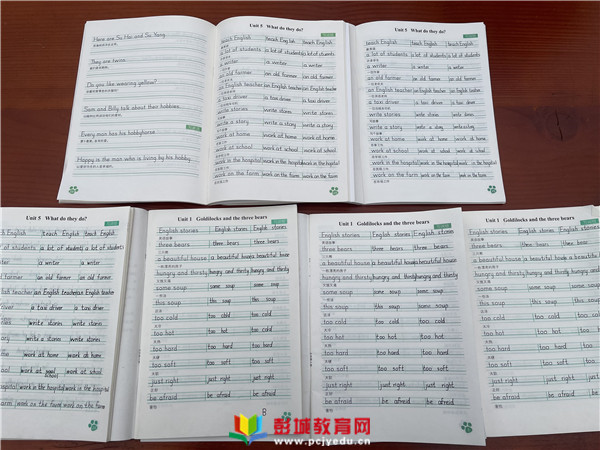 Here are Su Hai and Su Yang.
They are twins.
Do you like wearing yellow?
Sam and Billy talk about their hobbies.
Every man has his hobbyhorse.
Happy is the man who is living by his hobby.
Unit 5 What do they do?
teach English teach English teach English
a lot of students a lot of students a lot of students
a writer a writer a writer
an old farmer an old farmer an old farmer
an English teacher an English teacher an English teacher
a taxi driver a taxi driver a taxi driver
write stories write stories write stories
write a story write a story write a story
work at home work at home work at home
work at school work at school work at school
work in the hospital work in the hospital work in the hospital
work on the farm work on the farm work on the farm
Unit 5 What do they do?
teach English teach English teach English
a lot of students a lot of students a lot of students
a writer a writer a writer
an old farmer an old farmer an old farmer
an English teacher an English teacher an English teacher
a taxi driver a taxi driver a taxi driver
write stories write stories write stories
write a story write a story write a story
work at home work at home work at home
work at school work at school work at school
work in the hospital work in the hospital work in the hospital
work on the farm work on the farm work on the farm
Unit 5 What do they do?
English teach English teach English
of students a lot of students a lot of students
a writer a writer
farmer an old farmer an old farmer
teacher an English teacher an English teacher
a taxi driver a taxi driver
write stories write stories
write a story write a story
work at home work at home
work at school work at school
work in the hospital work in the hospital
work on the farm work on the farm
Unit 1 Goldilocks and the three bears
English stories English stories English stories
three bears three bears three bears
a beautiful house a beautiful house a beautiful house
hungry and thirsty hungry and thirsty hungry and thirsty
some soup some soup some soup
this soup this soup this soup
too cold too cold too cold
too hot too hot too hot
too hard too hard too hard
too soft too soft too soft
just right just right just right
be afraid be afraid be afraid
8
Unit 1 Goldilocks and the three bears
English stories English stories English stories
three bears three bears three bears
a beautiful house a beautiful house a beautiful house
hungry and thirsty hungry and thirsty hungry and thirsty
some soup some soup some soup
this soup this soup this soup
too cold too cold too cold
too hot too hot too hot
too hard too hard too hard
too soft too soft too soft
just right just right just right
be afraid be afraid be afraid
Unit 1 Goldilocks and the three bears
English stories English stories English
three bears three bears three bears
a beautiful house a beautiful house a beautiful
hungry and thirsty hungry and thirsty hungry and
some soup some soup some
this soup this soup this
too cold too cold too
too hot too hot too
too hard too hard too
too soft too soft too
just right just right just
be afraid be afraid be
彭城教育网
www.pcjyedu.cn